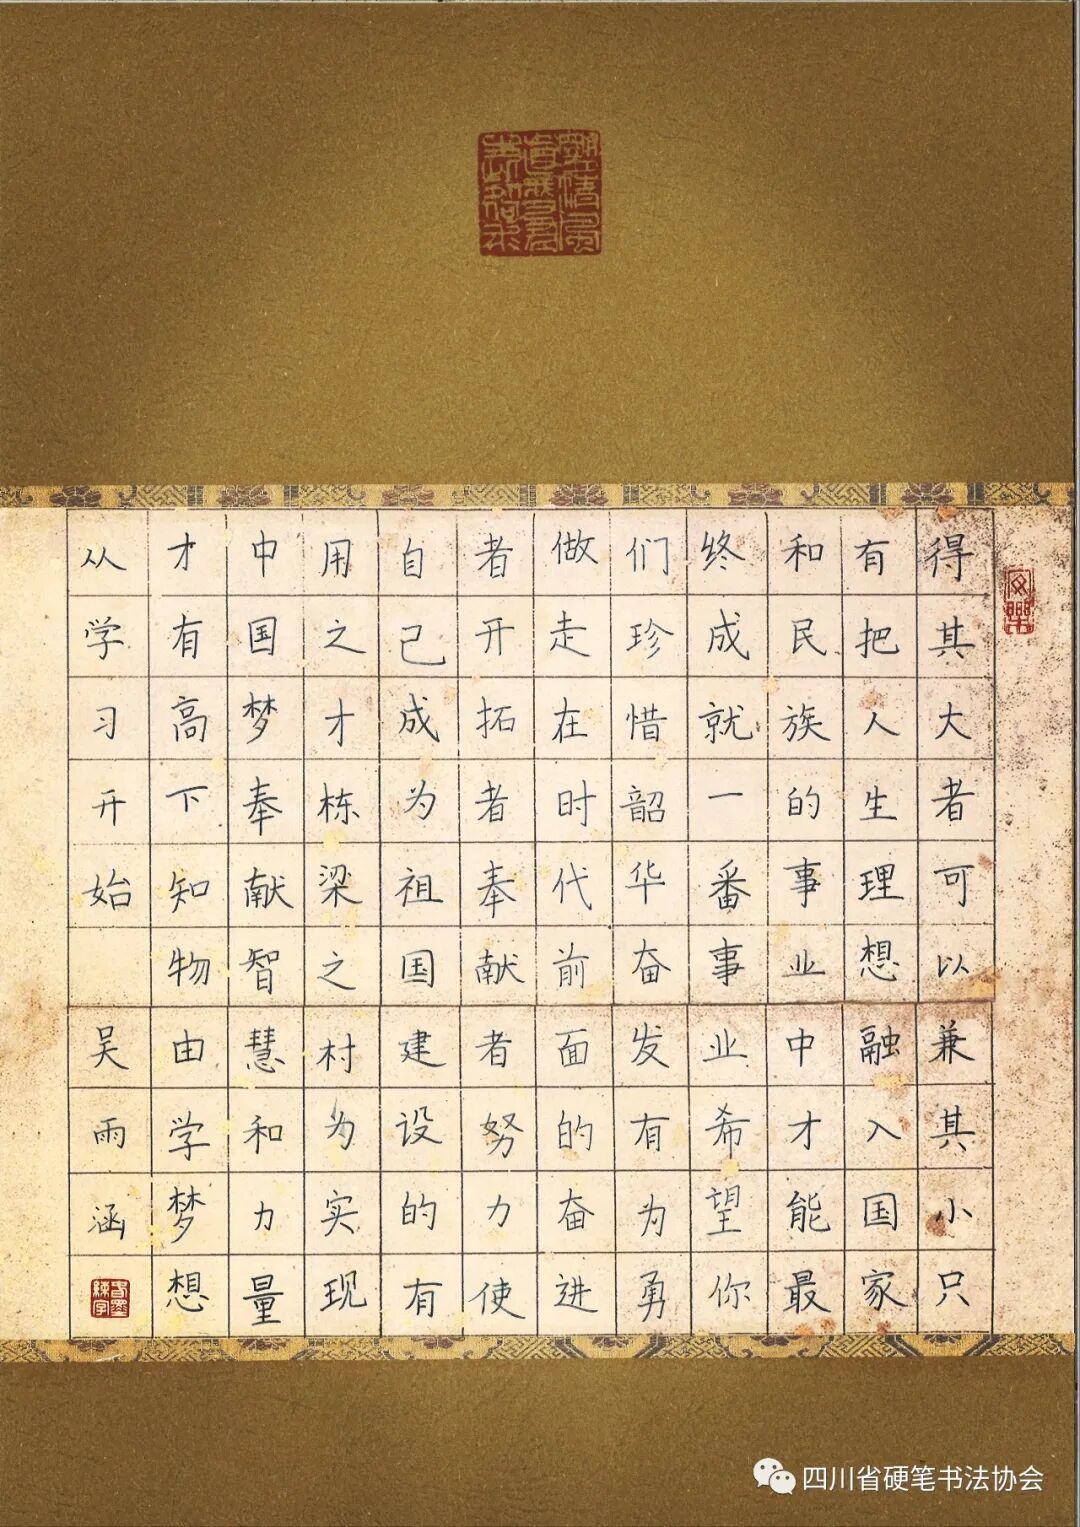 得其大者可以兼其小只
有把人生理想融入国家
和民族的事业中才能最
终成就一番事业希望你
们珍惜韶华奋发有为勇
做走在时代前面的奋进
者开拓者奉献者努力使
自己成为祖国建设的有
用之才栋梁之村为实现
中国梦奉献智慧和力量
才有高下知物由学梦想
从学习开始 吴雨涵
四川省硬笔书法协会